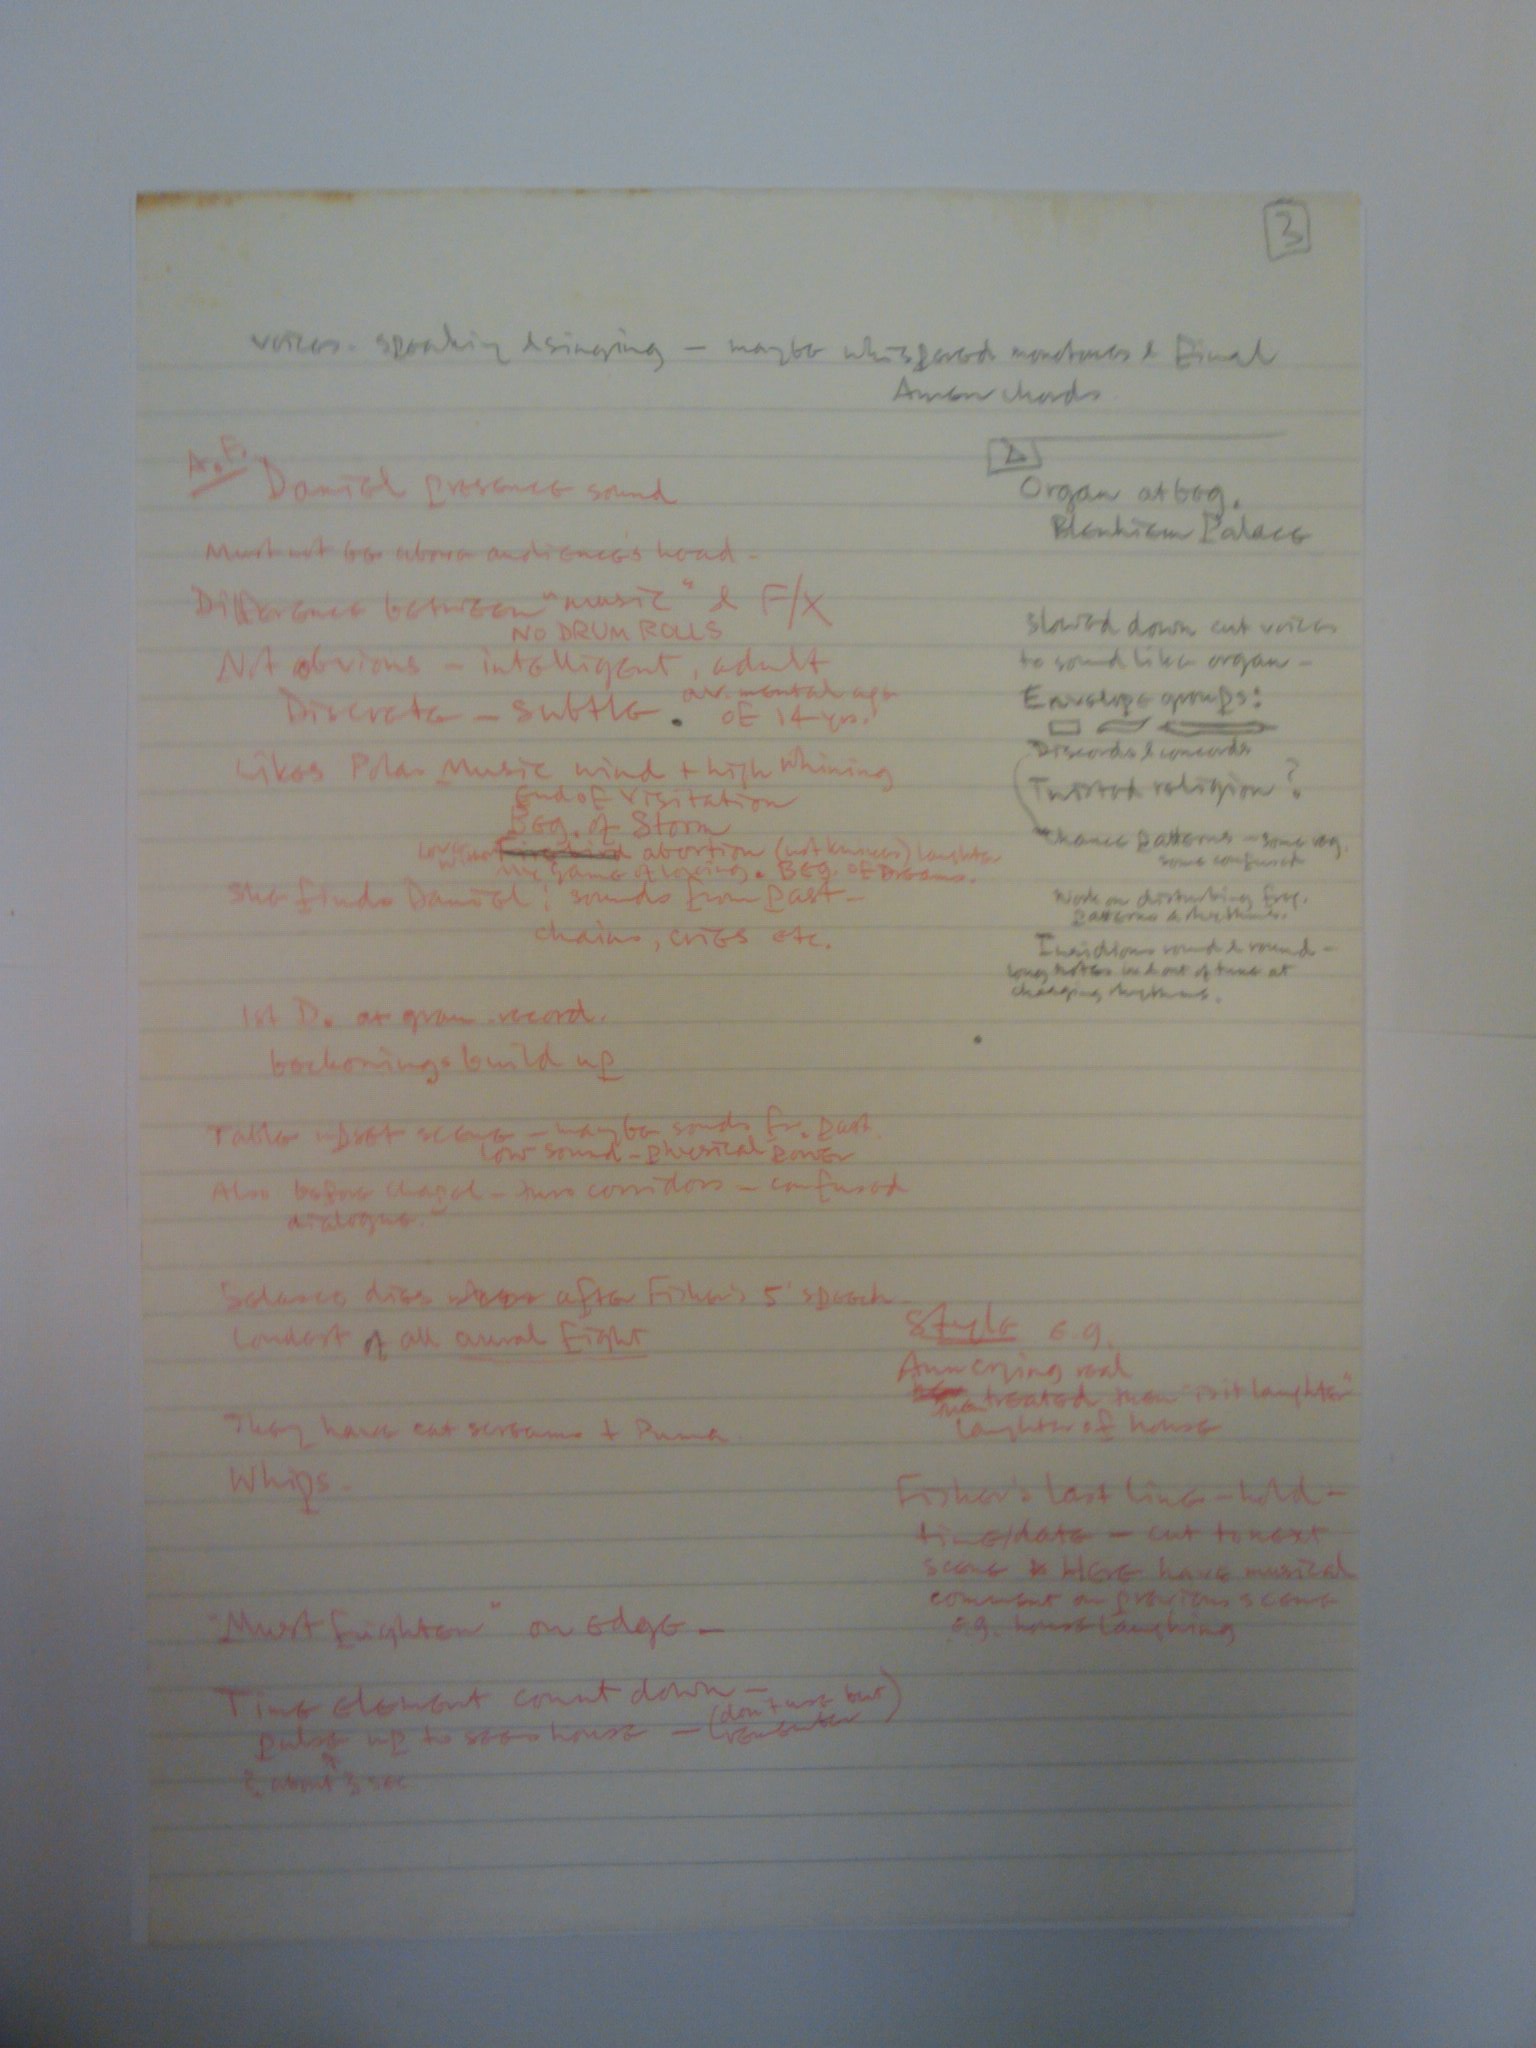 3
voices. speaking & singing — maybe whispered monotones & final
Amen chords.
A.F.
Daniel presence sound
Must not be above audience's head —
Difference between "music" & F/X
NO DRUM ROLLS
Not obvious — intelligent, adult
Discrete — subtle. av. mental age
of 14 yrs!
Likes Polar Music wind + high whining
End of Visitation
Beg. of Storm
abortion (not knives) laughter
game of loving. Beg. of Dreams.
She finds Daniel: sounds from past —
chains, cries etc.
1st D. at gram. record.
beckonings build up
Table upset scene — maybe sounds fr. past.
low sound — physical power
Also before chapel — two corridors — confused
dialogue."
Belasco dies after Fisher's 5' speech
Loudest of all aural fight
They have cat screams + Puma
Whips.
"Must frighten" on edge —
Time element count down —
pulse up to seeing house — (don't use but
remember)
about 3 sec
D
Organ at beg.
Blenhiem Palace
Slowed down cut voices
to sound like organ —
Envelope groups:
Discords & concords
Twisted religion?
Chance patterns — some reg.
some confused
Work on disturbing freq.
patterns & rhythms.
Insidious round & round —
long notes in & out of tune at
changing rhythms.
Style e.g.
Ann crying real
treated then "is it laughter"
laughter of house
Fisher's last line — hold —
time/date — cut to next
scene & HERE have musical
comment on previous scene
e.g. house laughing